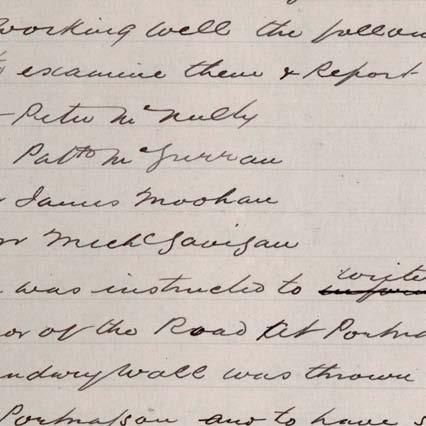 working well the follow
to examine them & Report
Peter McNully
Patk McGurran
James Moohan
Mich Gavigan
was instructed to write inform
or of the Road at Portna
ndary Wall was thrown
Portnason and to have s